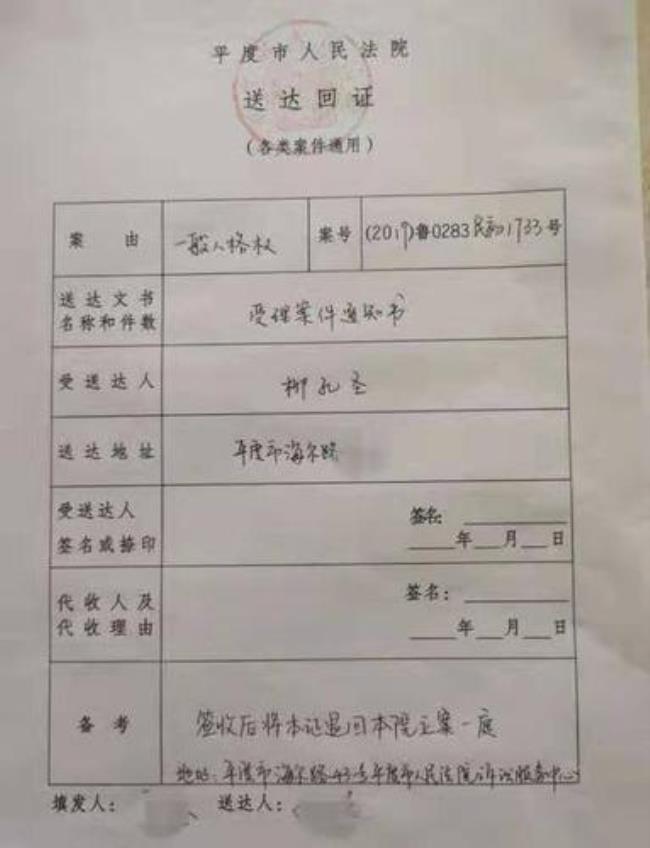 平度市人民法院
送达回证
(各类案件通用)
案由 一般人格权 案号 (2019)鲁0283民初1733号
送达文书
名称和件数 受理案件通知书
受送达人 柳孔圣
送达地址 平度市海尔路
受送达人
签名或捺印
签名:
年 月 日
代收人及
代收理由
签名:
年 月 日
备考 签收后将本证退回本院立案一庭
地址:平度市海尔路43号平度市人民法院诉讼服务中心
填发人: 送达人: